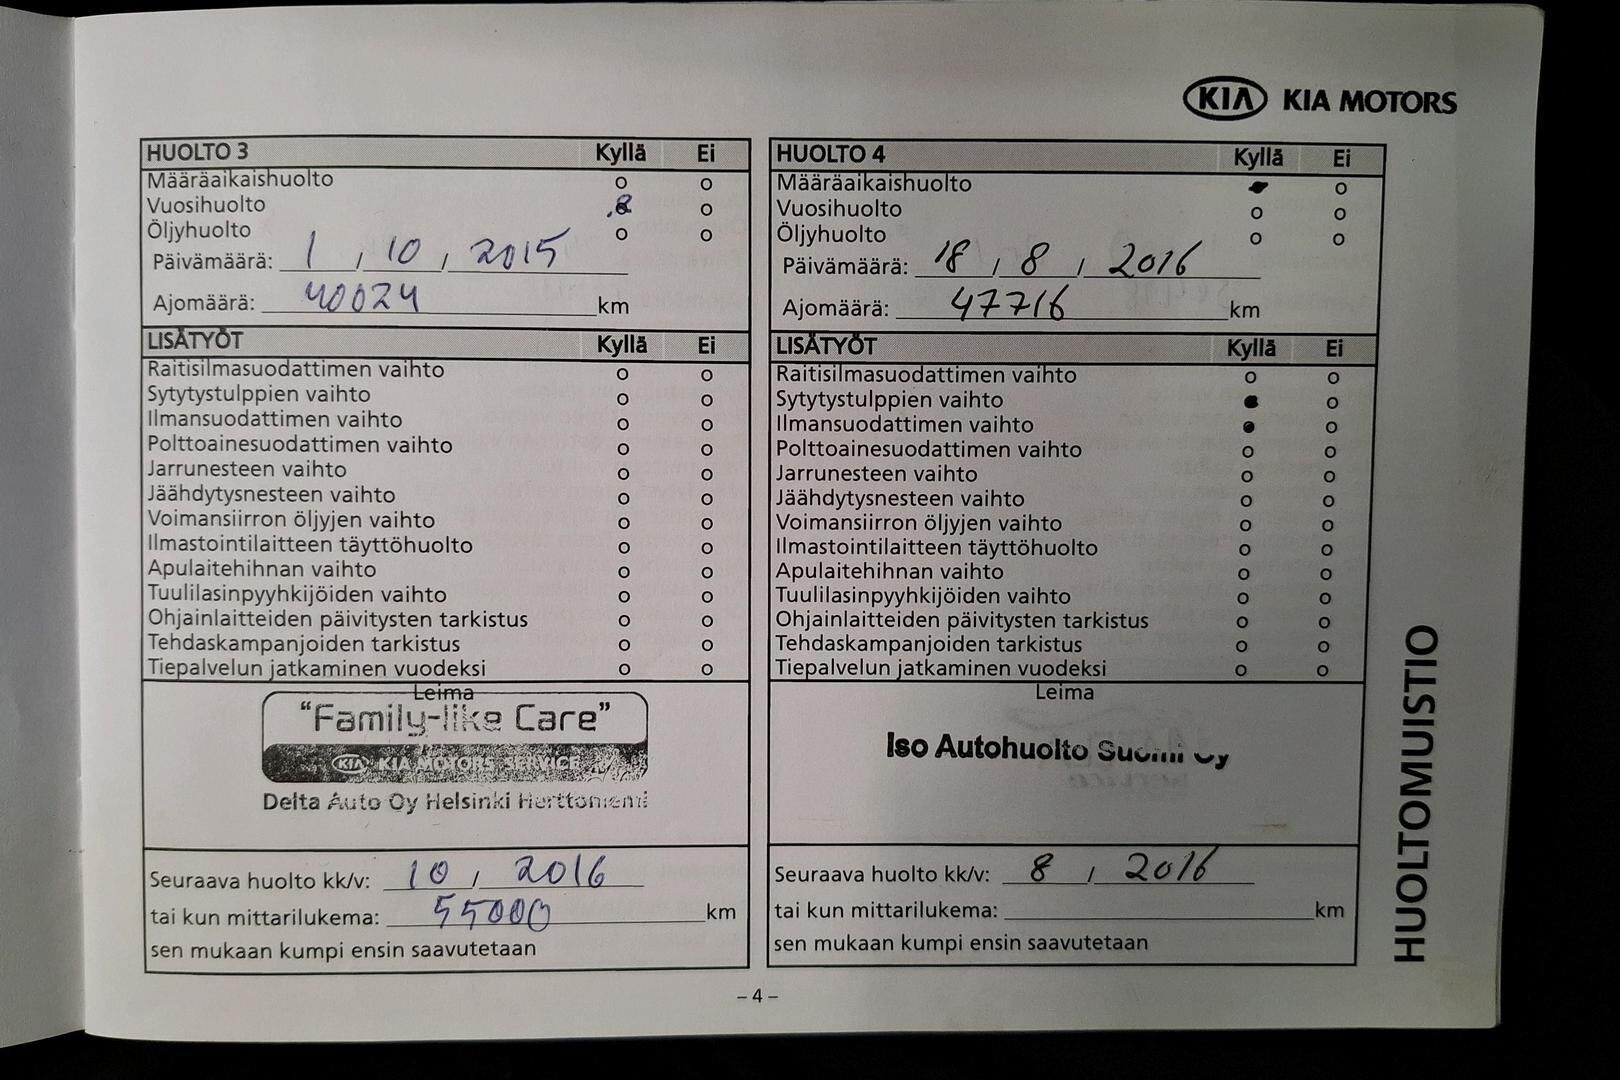 KIA KIA MOTORS
HUOLTO 3 Kyllä Ei
Määräaikaishuolto o o
Vuosihuolto o
Öljyhuolto o o
Päivämäärä: 1 / 10 / 2015
Ajomäärä: 40024 km
LISÄTYÖT Kyllä Ei
Raitisilmasuodattimen vaihto o o
Sytytystulppien vaihto o o
Ilmansuodattimen vaihto o o
Polttoainesuodattimen vaihto o o
Jarrunesteen vaihto o o
Jäähdytysnesteen vaihto o o
Voimansiirron öljyjen vaihto o o
Ilmastointilaitteen täyttöhuolto o o
Apulaitehihnan vaihto o o
Tuulilasinpyyhkijöiden vaihto o o
Ohjainlaitteiden päivitysten tarkistus o o
Tehdaskampanjoiden tarkistus o o
Tiepalvelun jatkaminen vuodeksi o o
Leima
"Family-like Care"
KIA KIA MOTORS SERVICE
Delta Auto Oy Helsinki Herttoniemi
Seuraava huolto kk/v: 10 / 2016
tai kun mittarilukema: 55000 km
sen mukaan kumpi ensin saavutetaan
HUOLTO 4 Kyllä Ei
Määräaikaishuolto o
Vuosihuolto o o
Öljyhuolto o o
Päivämäärä: 18 / 8 / 2016
Ajomäärä: 47716 km
LISÄTYÖT Kyllä Ei
Raitisilmasuodattimen vaihto o o
Sytytystulppien vaihto o
Ilmansuodattimen vaihto o
Polttoainesuodattimen vaihto o o
Jarrunesteen vaihto o o
Jäähdytysnesteen vaihto o o
Voimansiirron öljyjen vaihto o o
Ilmastointilaitteen täyttöhuolto o o
Apulaitehihnan vaihto o o
Tuulilasinpyyhkijöiden vaihto o o
Ohjainlaitteiden päivitysten tarkistus o o
Tehdaskampanjoiden tarkistus o o
Tiepalvelun jatkaminen vuodeksi o o
Leima
Iso Autohuolto Suomi Oy
Seuraava huolto kk/v: 8 / 2016
tai kun mittarilukema: km
sen mukaan kumpi ensin saavutetaan
HUOLTOMUISTIO
– 4 –